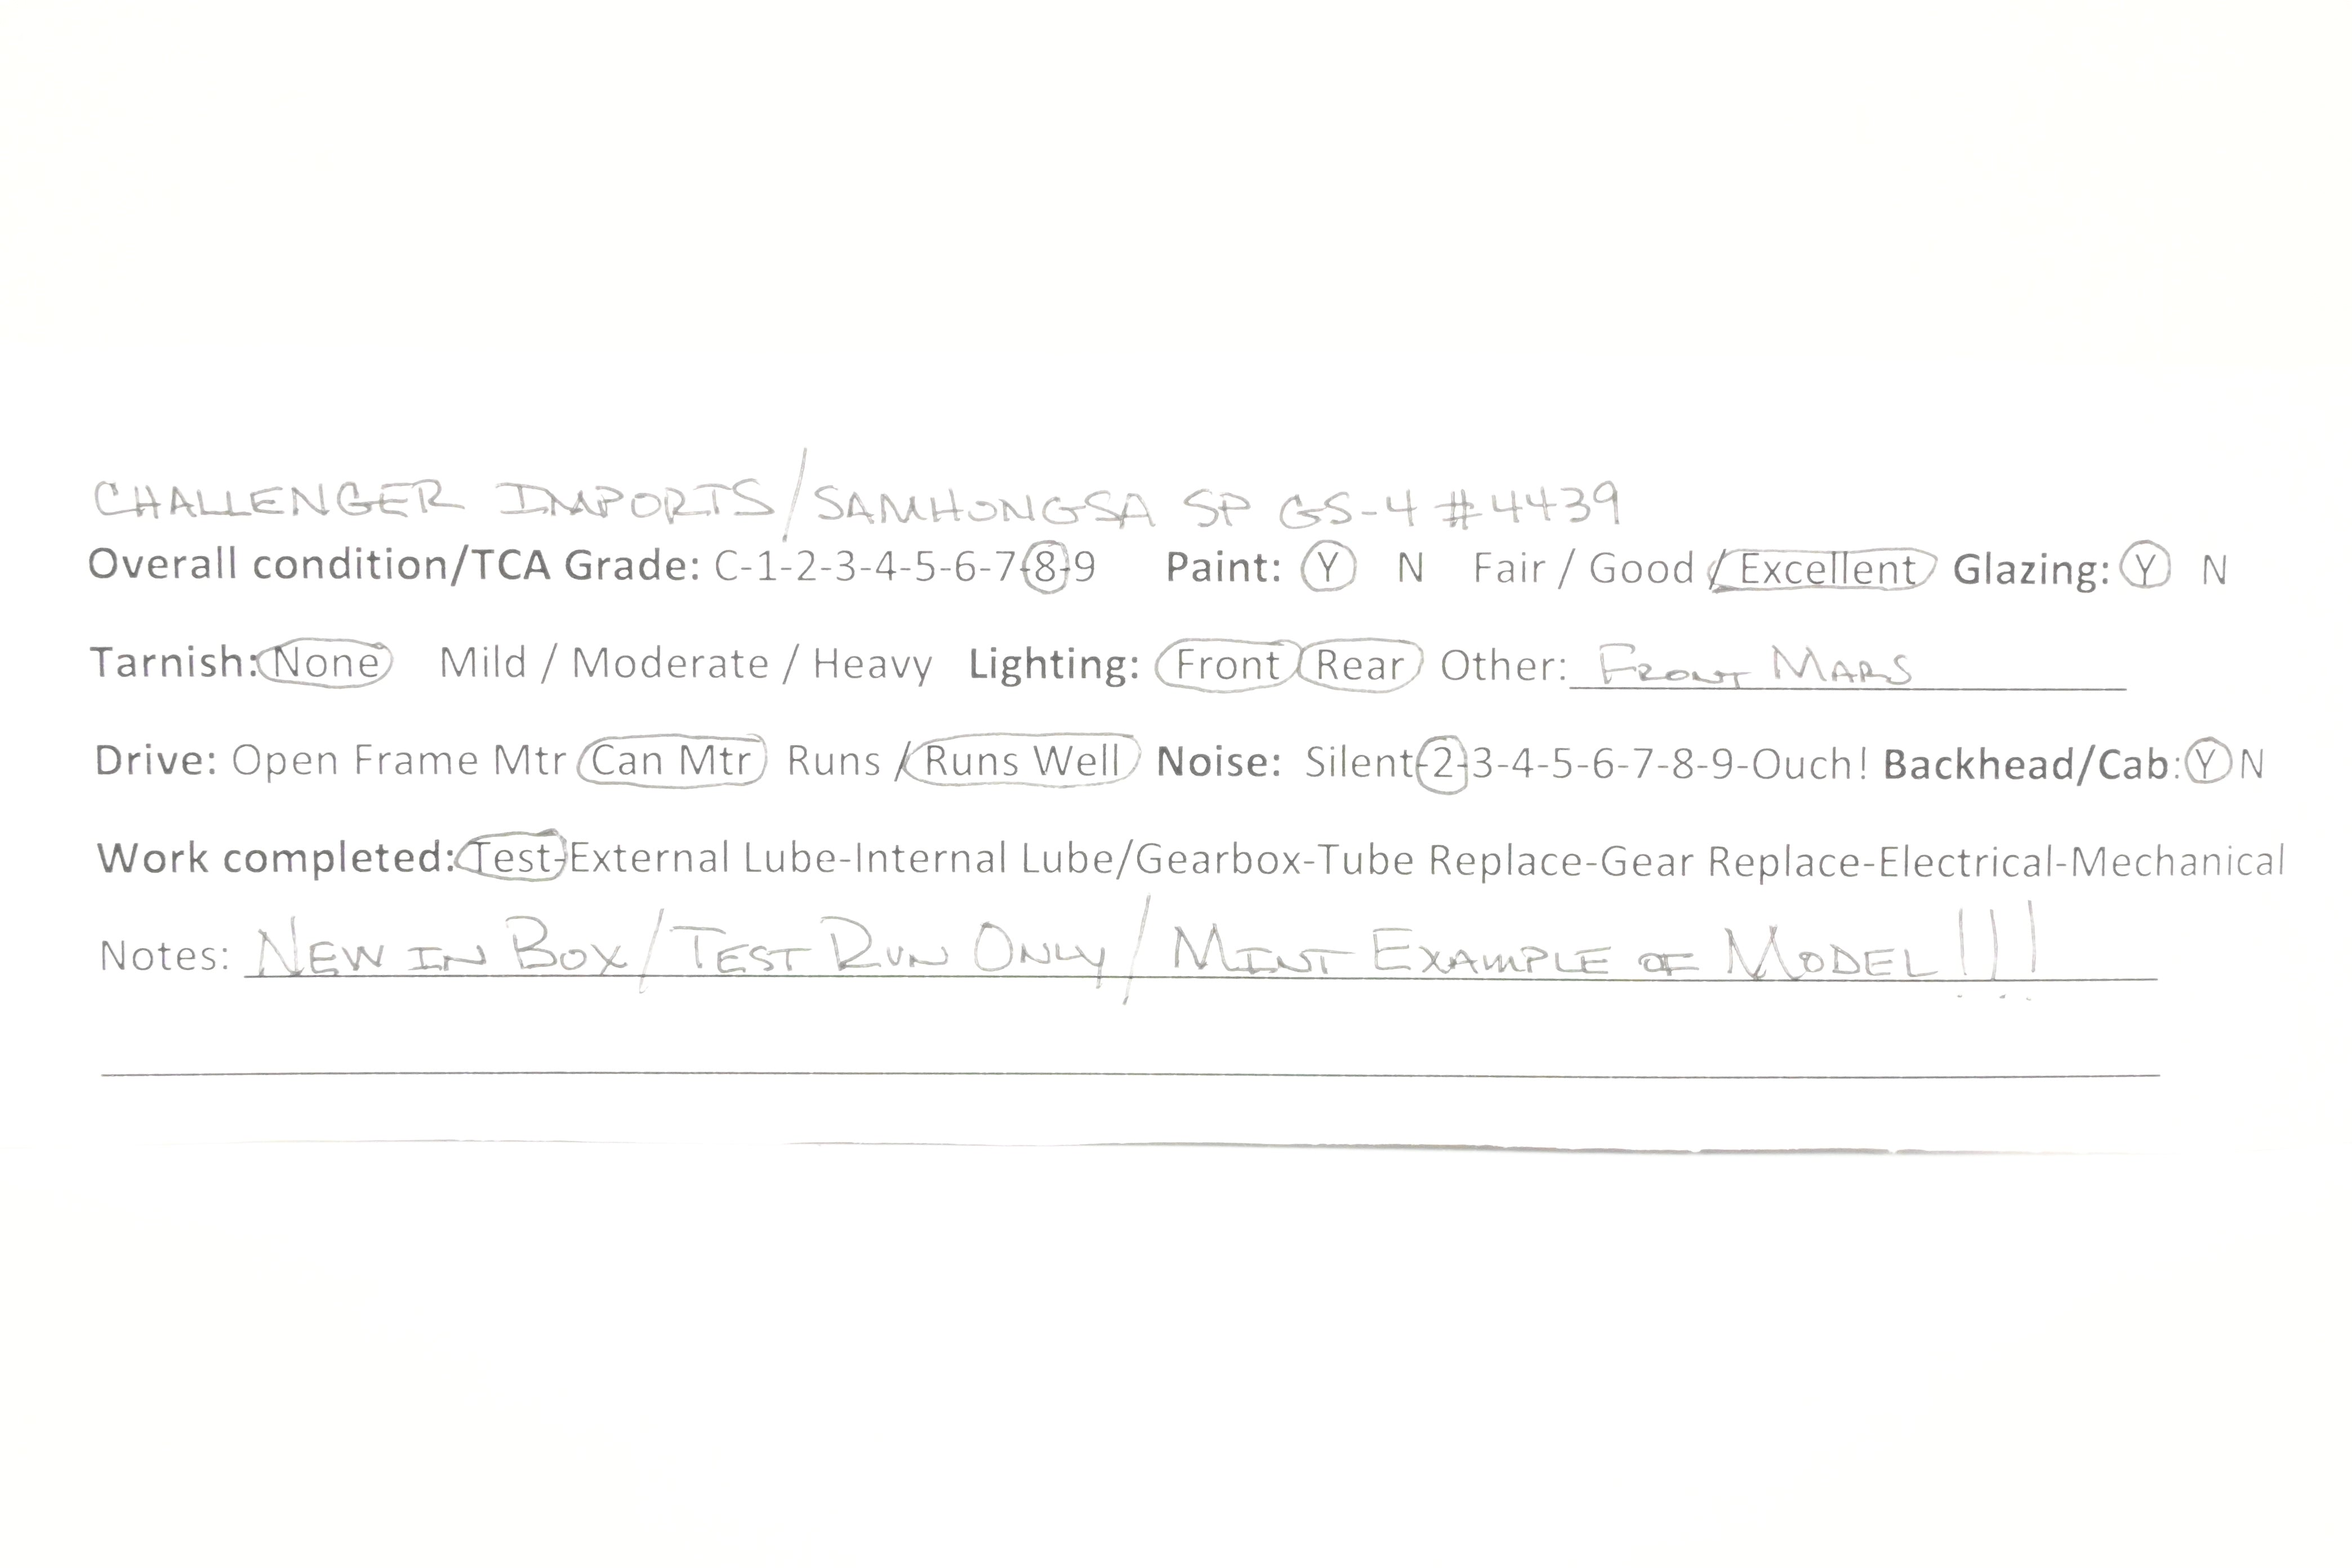 CHALLENGER IMPORTS/SAMHONGSA SP GS-4 #4439
Overall condition/TCA Grade: C-1-2-3-4-5-6-7-8-9 Paint: Y N Fair / Good / Excellent Glazing: Y N
Tarnish: None Mild / Moderate / Heavy Lighting: Front Rear Other: FRONT MARS
Drive: Open Frame Mtr Can Mtr Runs / Runs Well Noise: Silent-2-3-4-5-6-7-8-9-Ouch! Backhead/Cab: Y N
Work completed: Test-External Lube-Internal Lube/Gearbox-Tube Replace-Gear Replace-Electrical-Mechanical
Notes: NEW IN BOX/TEST RUN ONLY/MINT EXAMPLE OF MODEL!!!